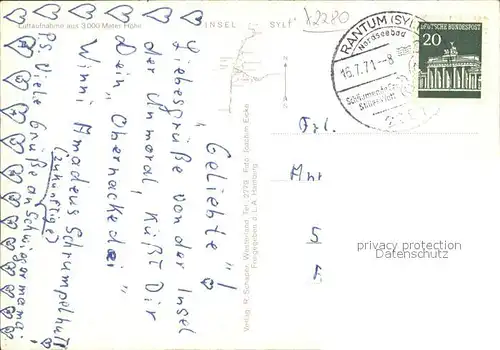 Luftaufnahme aus 3000 Meter Höhe
INSEL SYLT
λ2280
"Geliebte"!
Liebesgrüße von der Insel
der Unmoral, küßt Dir
Dein "Obernackedei"
Winni Amadeus Schrumpelhut
P.S. Viele Grüße an Schwiegermama!
(zukünftige)
Verlag R. Schaper, Westerland, Tel. 2779 Foto Joachim Eicke
Freigegeben d. L.A. Hamburg
RANTUM (SYLT)
Nordseebad
16.7.71-8
2281
DEUTSCHE BUNDESPOST
20
Frl.
privacy protection
Datenschutz